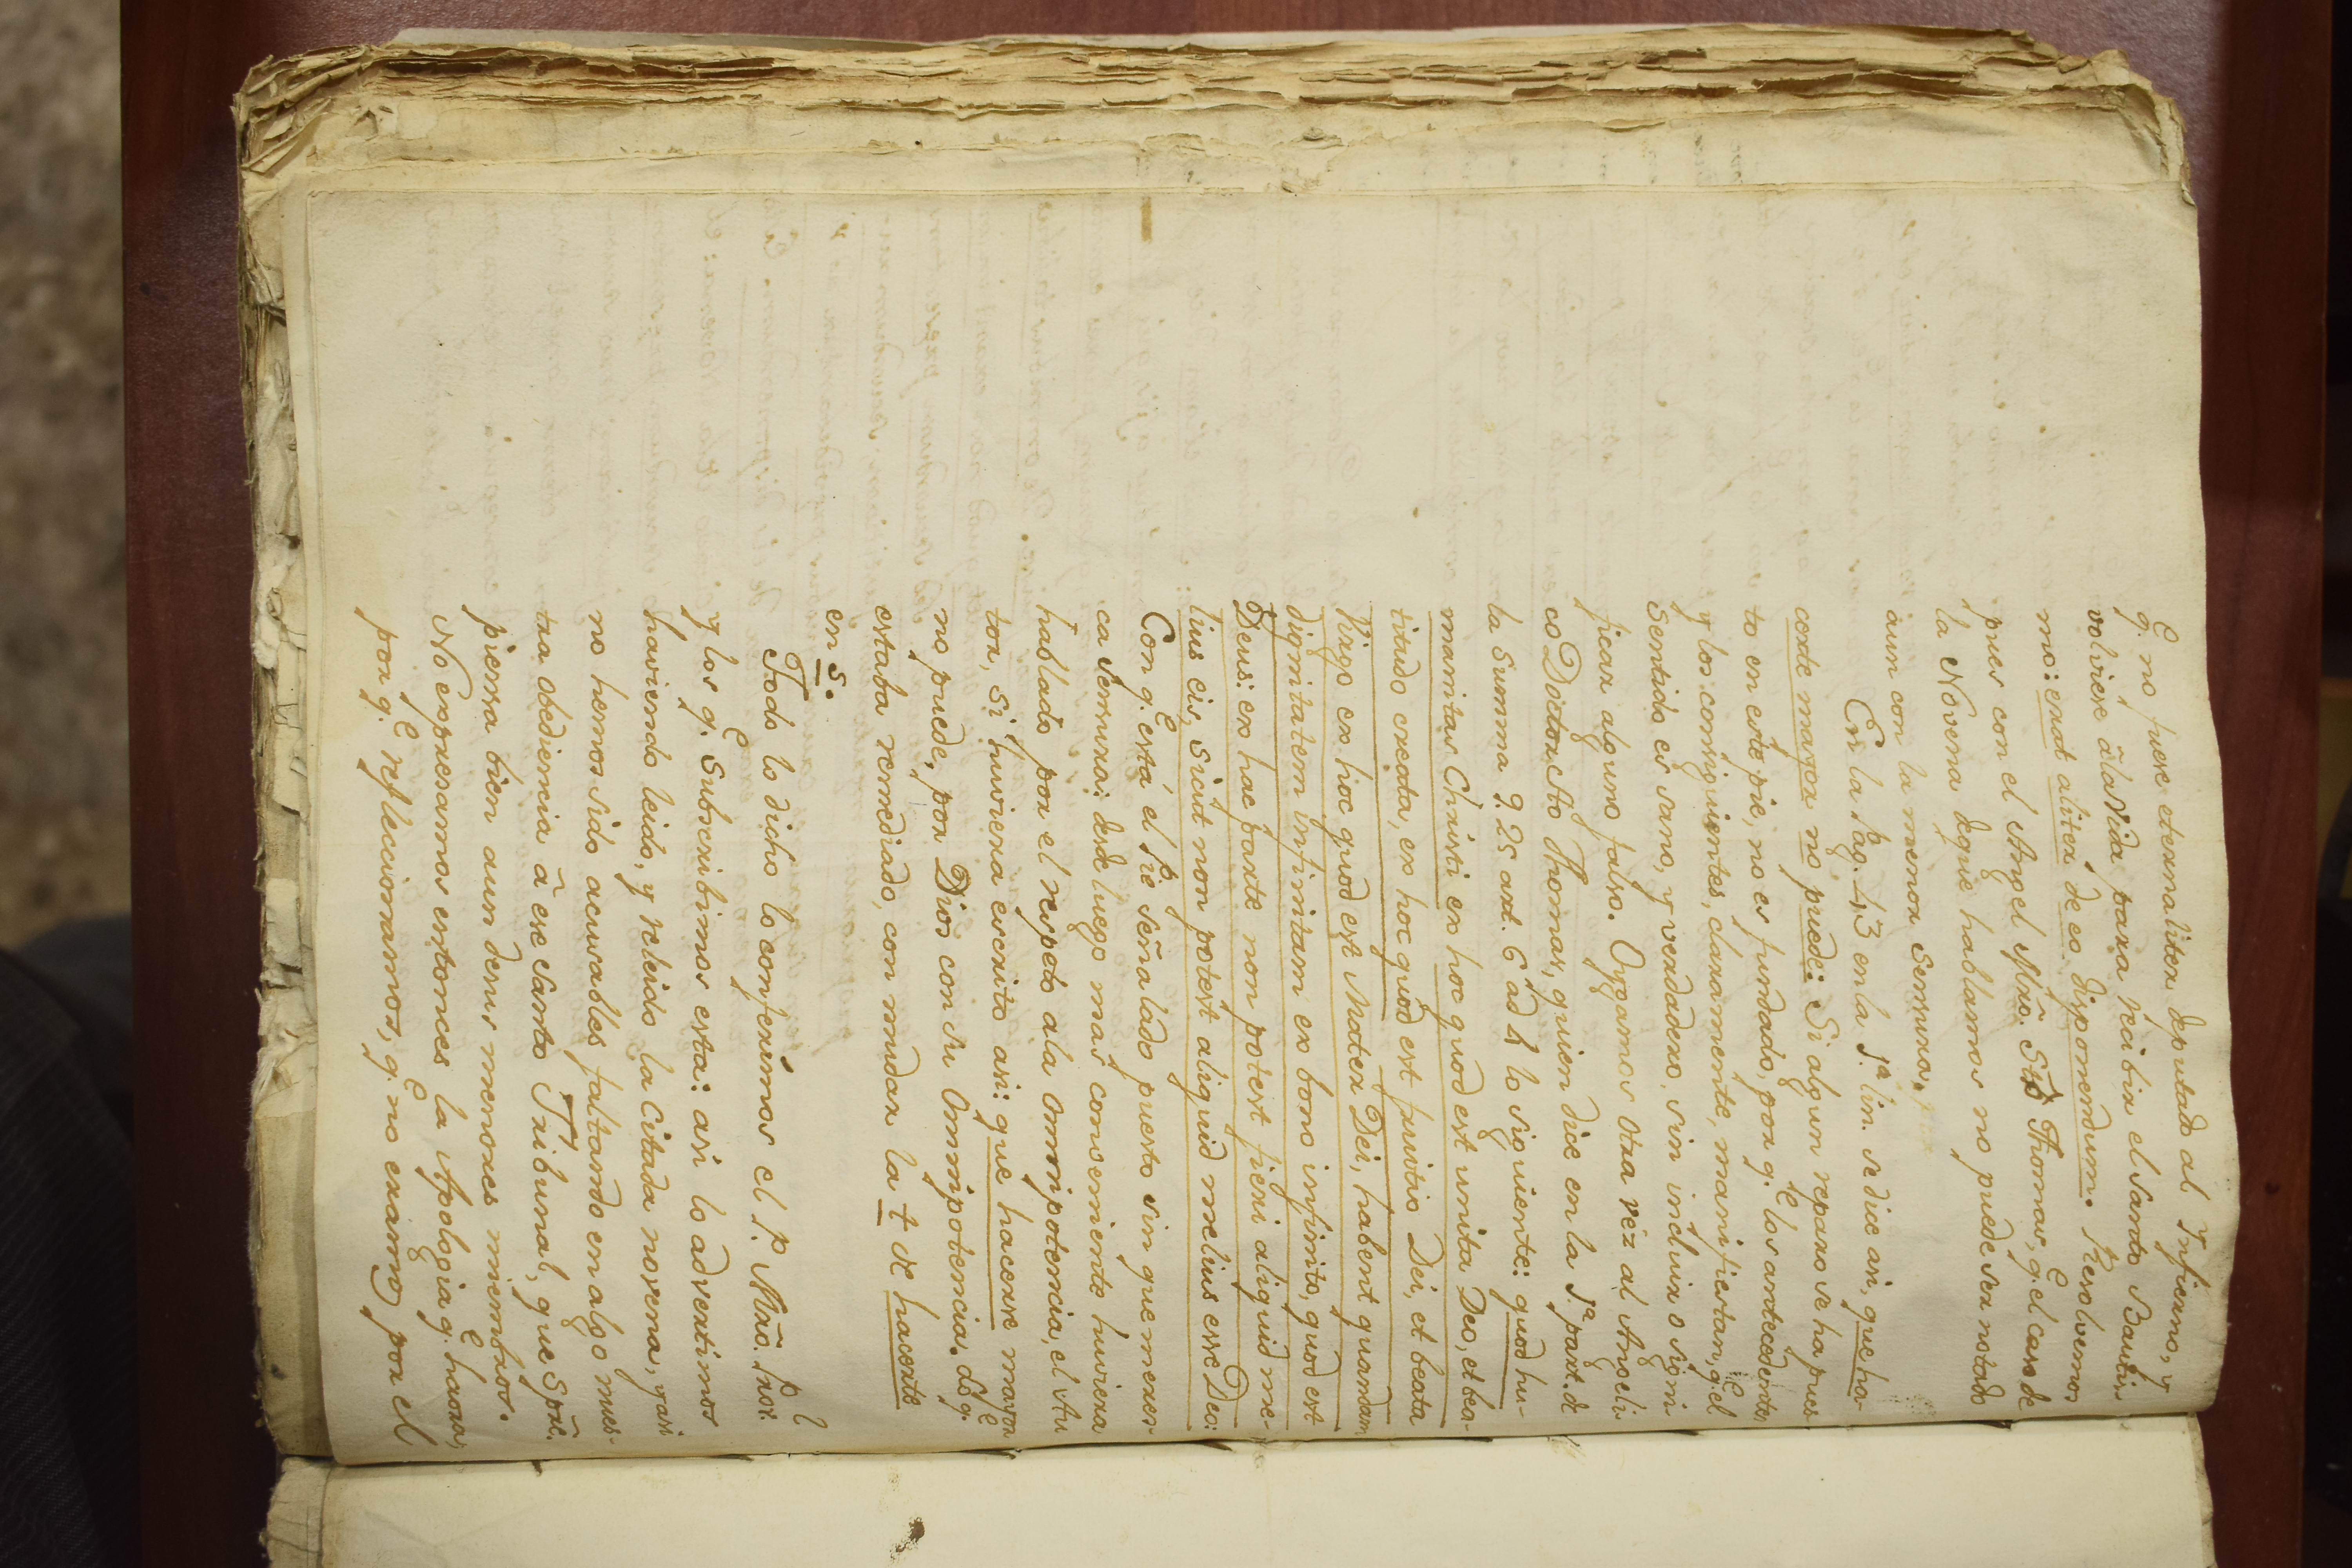 q.e no fuese eternaliter deputado al Ynfierno, y
volviese â la Vida para recibir el Santo Bautis-
mo: erat aliter de eo disponendum. Resolvemos
pues con el Angel Mrõ. Sto Thomas, q.e el caso de
la Novena de que hablamos no puede ser notado
aun con la menor sensura.
En la Pag. 43 en la 1.a lin. se dice asi, que ha-
certe maior no puede: Si algun reparo se ha pues-
to en este pie, no es fundado, por q.e los antecedentes
y los consiguientes, claramente, manifiestan, q.e el
sentido es sano, y verdadero, sin incluir o signi-
ficar alguno falso. Oygamos otra vez al Angeli-
co Doctor Sto Thomas, quien dice en la 1.a part. de
la Summa q. 25 art. 6 ad 4 lo siguiente: quod hu-
manitas Christi ex hoc quod est unita Deo, et bea-
titudo creata, ex hoc quod est fruitio Dei, et beata
Virgo ex hoc quod est Mater Dei, habent quandam
dignitatem infinitam ex bono infinito, quod est
Deus: ex hac parte non potest fieri aliquid me-
lius eis, sicut non potest aliquid melius esse Deo:
Con q.e está el pie señalado puesto sin que meres-
ca sensura: desde luego mas consemiente huviera
hablado por el respeto a la omnipotencia, el Au
tor, si huviera escrito asi: que hacerse mayor
no puede, por Dios con su Omnipotencia. Lo q.e
estaba remediado, con mudar la t de hacerte
en s.
Todo lo dicho lo conferimos el P. Mrõ. Prior.
y los q.e subscribimos esta: asi lo advertimos
haviendo leido, y releido la citada novena, y asi
no hemos sido acusables faltando en algo nues-
tra obediencia â ese Santo Tribunal, que Sprẽ.
piensa bien aun de sus menores miembros.
No expresamos entonces la Apologia q.e haora,
por q.e refleccionamos, q.e no eramos por el